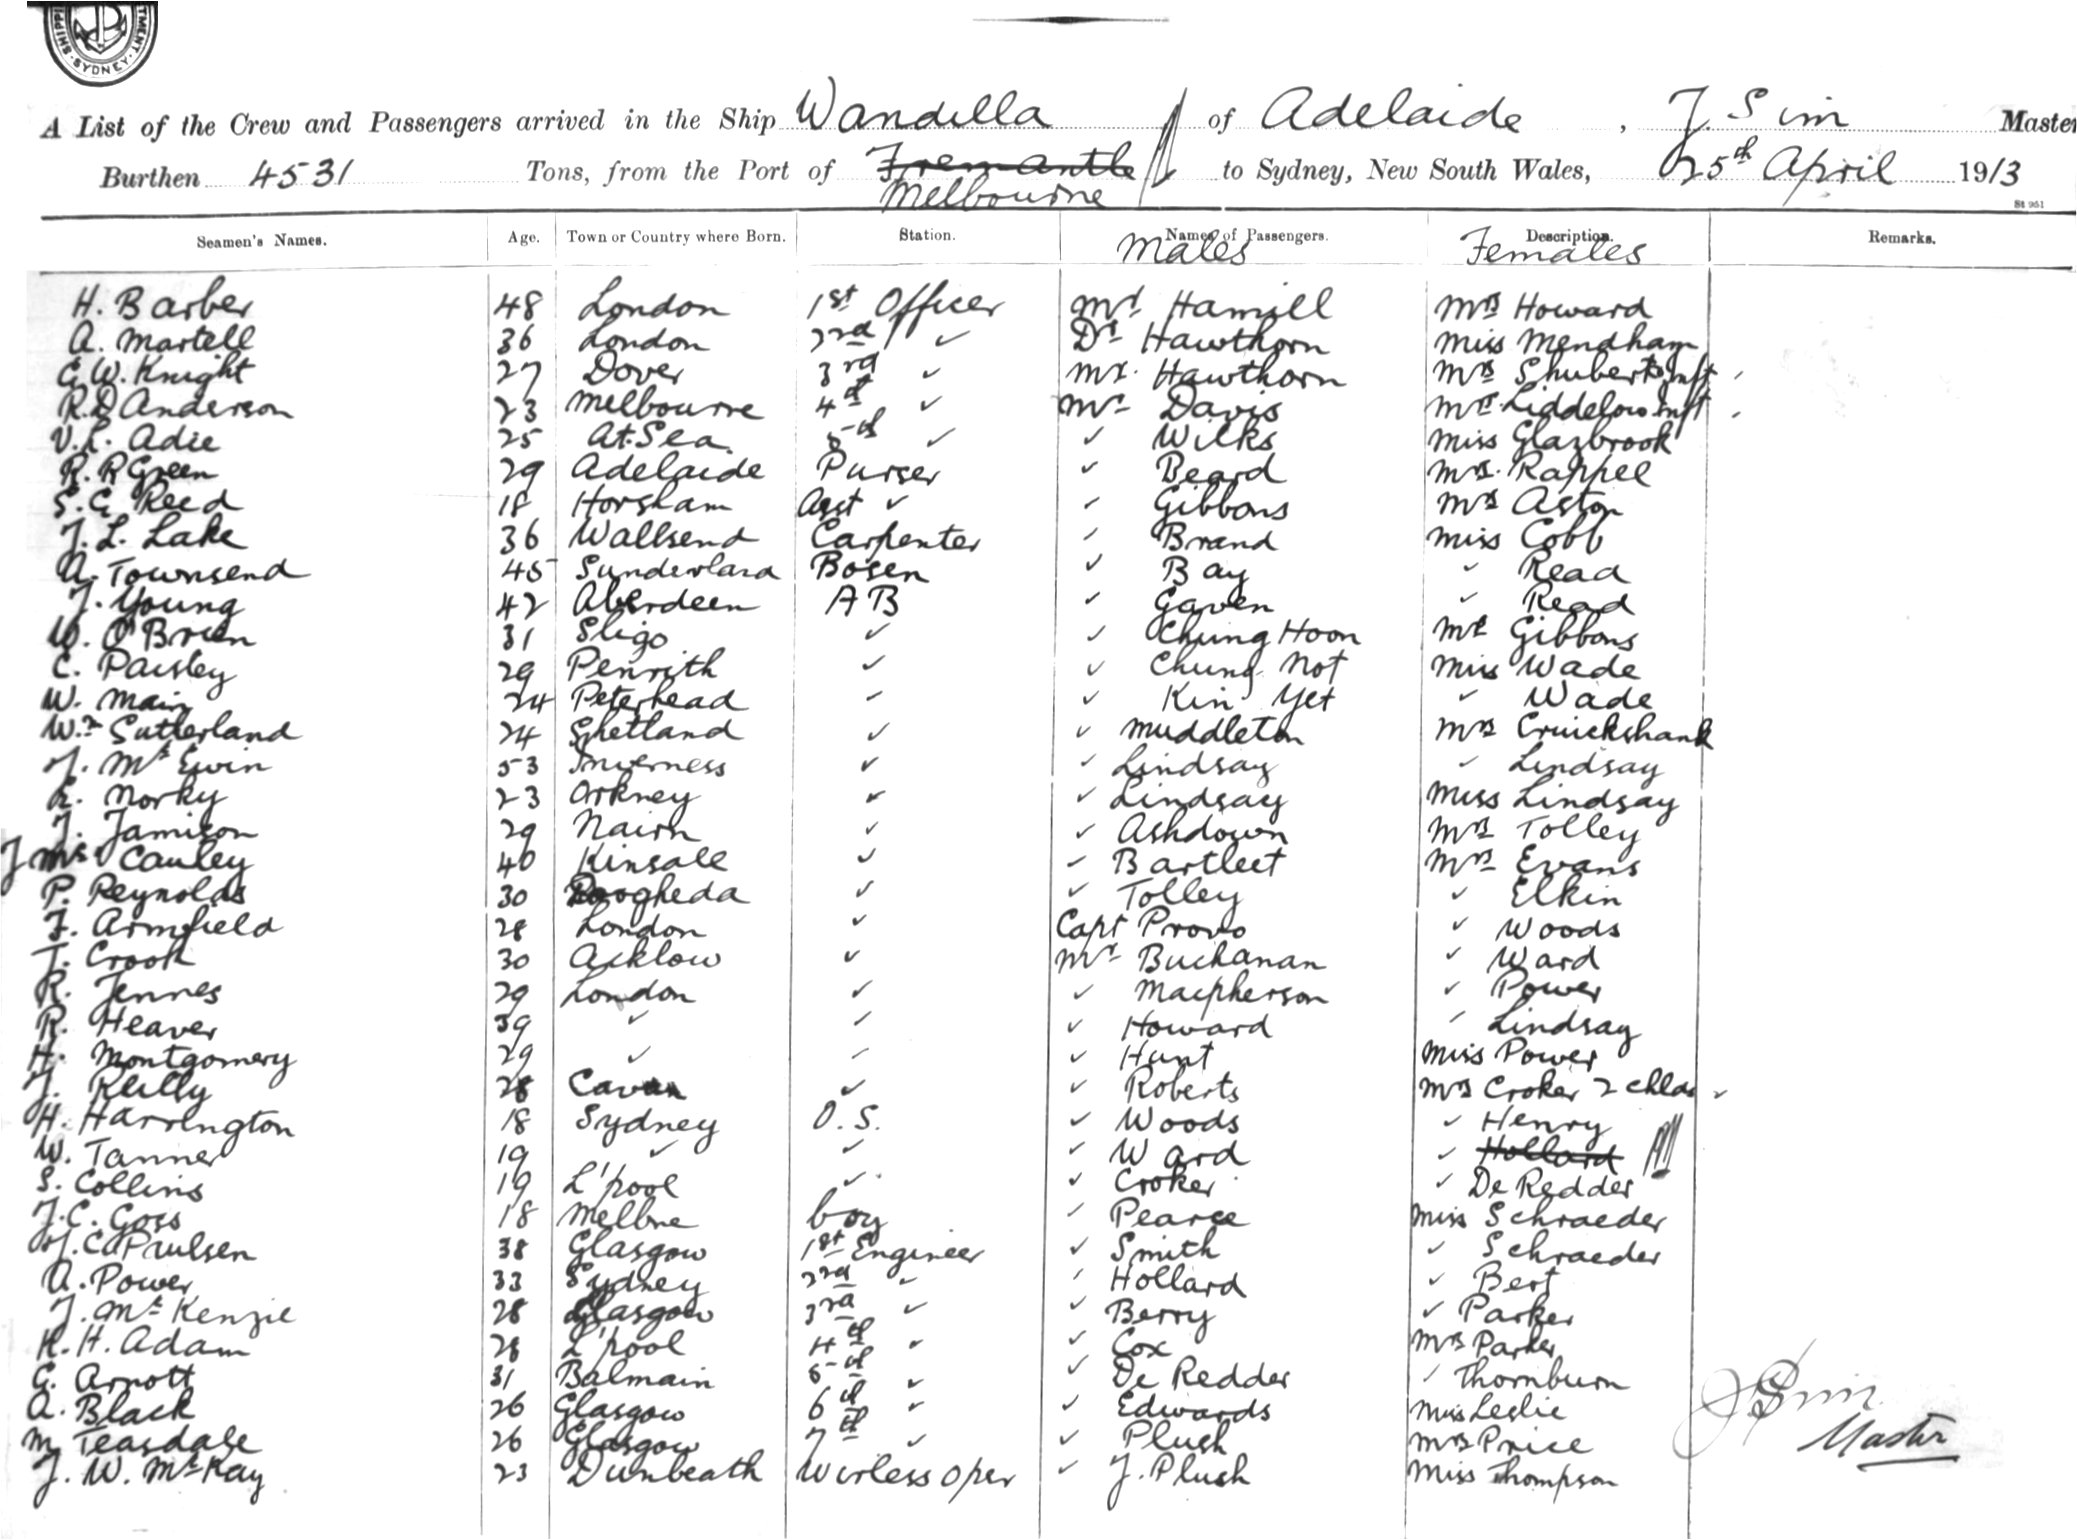 SHIPPI TMENT. SYDNEY
A List of the Crew and Passengers arrived in the Ship Wandilla of Adelaide, J. Sim Master
Burthen 4531 Tons, from the Port of Fremantle to Sydney, New South Wales, 25th April 1913
Melbourne
St 951
Seamen's Names. Age. Town or Country where Born. Station. Names of Passengers. Description. Remarks.
Males Females
H. Barber 48 London 1st Officer Mr Hamill Mrs Howard
A. Martell 36 London 2nd ✓ Dr Hawthorn Miss Mendham
G. W. Knight 27 Dover 3rd ✓ Mr. Hawthorn Mrs Shubert & Inft ✓
R. D Anderson 23 Melbourne 4th ✓ Mr Davis Mrs Liddelow Inft ✓
V. L. Adie 25 At. Sea 5th ✓ ✓ Wilks Miss Glazbrook
R. R Green 29 Adelaide Purser ✓ Beard Mrs. Rappel
S. G Reed 18 Horsham Asst ✓ ✓ Gibbons Mrs Aston
J. L. Lake 36 Wallsend Carpenter ✓ Brand Miss Cobb
A. Townsend 45 Sunderland Bosen ✓ Bay ✓ Read
J. Young 42 Aberdeen A B ✓ Gaven ✓ Read
W. O'Brien 31 Sligo ✓ ✓ Chung Hoon Mrs Gibbons
C. Paisley 29 Penrith ✓ ✓ Chung Not Miss Wade
W. Main 24 Peterhead ✓ ✓ Kin Yet ✓ Wade
Wm Sutherland 24 Shetland ✓ ✓ Muddleton Mrs Cruickshank
J. Mc Ewin 53 Inverness ✓ ✓ Lindsay ✓ Lindsay
R. Norky 23 Orkney ✓ ✓ Lindsay Miss Lindsay
J. Jamison 29 Nairn ✓ ✓ Ashdown Mrs Tolley
J Mc Cauley 40 Kinsale ✓ ✓ Bartleet Mrs Evans
P. Reynolds 30 Drogheda ✓ ✓ Tolley ✓ Elkin
F. Armfield 28 London ✓ Capt Provo ✓ Woods
T. Crook 30 Acklow ✓ Mr Buchanan ✓ Ward
R. Jennes 29 London ✓ ✓ Macpherson ✓ Power
R. Heaver 39 ✓ ✓ ✓ Howard ✓ Lindsay
H. Montgomery 29 ✓ ✓ ✓ Hunt Miss Power
J. Reilly 28 Cavan ✓ ✓ Roberts Mrs Croker 2 chlds ✓
H. Harrington 18 Sydney O. S. ✓ Woods ✓ Henry
W. Tanner 19 ✓ ✓ ✓ Ward ✓ Hollard
S. Collins 19 L'pool ✓ ✓ Croker ✓ De Redder
J. C. Goss 18 Melbne boy ✓ Pearce Miss Schraeder
H. C. Paulsen 38 Glasgow 1st Engineer ✓ Smith ✓ Schraeder
A. Power 33 Sydney 2nd ✓ ✓ Hollard ✓ Bert
J. Mc Kenzie 28 Glasgow 3rd ✓ ✓ Berry ✓ Parker
R. H. Adam 28 L'pool 4th ✓ ✓ Cox Mrs Parker
G. Arnott 31 Balmain 5th ✓ ✓ De Redder ✓ Thornburn
A. Black 26 Glasgow 6th ✓ ✓ Edwards Miss Leslie
M Teasdale 26 Glasgow 7th ✓ ✓ Plush Mrs Price
J. W. McKay 23 Dunbeath Wirless Oper ✓ J. Plush Miss Thompson
J Sim
Master